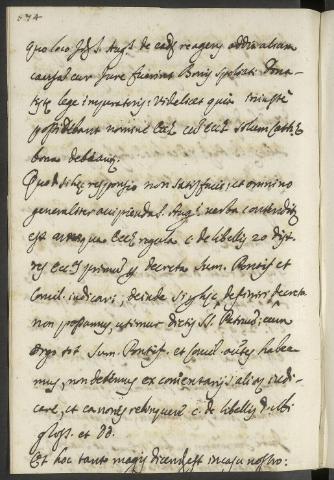 574
quo loco S. Aug. de eadem re agens addit aliam
causam cur jure fuerint Bonis spoliati Dona-
tistę lege Imperatoris: videlicet quia iniuste
possidebant nomine Eccl. cum Eccl. solum Cath.
bona debeant.
Quod si hęc responsio non satisfaciat, et omnino
generaliter accipienda S. Aug. verba contenditis
est antiqua Eccl. regula c. de libellis 20 dist.
res Eccl. primum decreta Sum. Pontif. et
Concil. indicari; deinde si ex his definiri decreta
non possumus, utimur dictis SS. Patrum; cum
ergo tot Sum. Pontif. et Concil. habea
mus, non debemus ex comentariis aliorum iudi-
care, et canones relinquere c. de libellis d. ubi
gloss. et DD.
Et hoc tanto magis dicendum est in casu nostro: